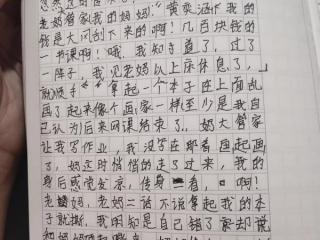 老妈管家我的妈妈."黄奕涵你我的
钱是大风刮下来的啊!几百块钱的
一书课啊!哦,我知道了,过了
一阵子,我见老妈以上床休息了,
就 拿起一个本子在上面乱
画了起来像个画家一样至少是我自
己认为后来网课结束了,妈大管家
让我写作业,我没写在那看画起画
了,妈这时悄悄的走了过来,我的
身后感觉发凉,传身一看,啊!
老妈,老妈二话不说拿起我的本
子就撕,我明知是自己错了